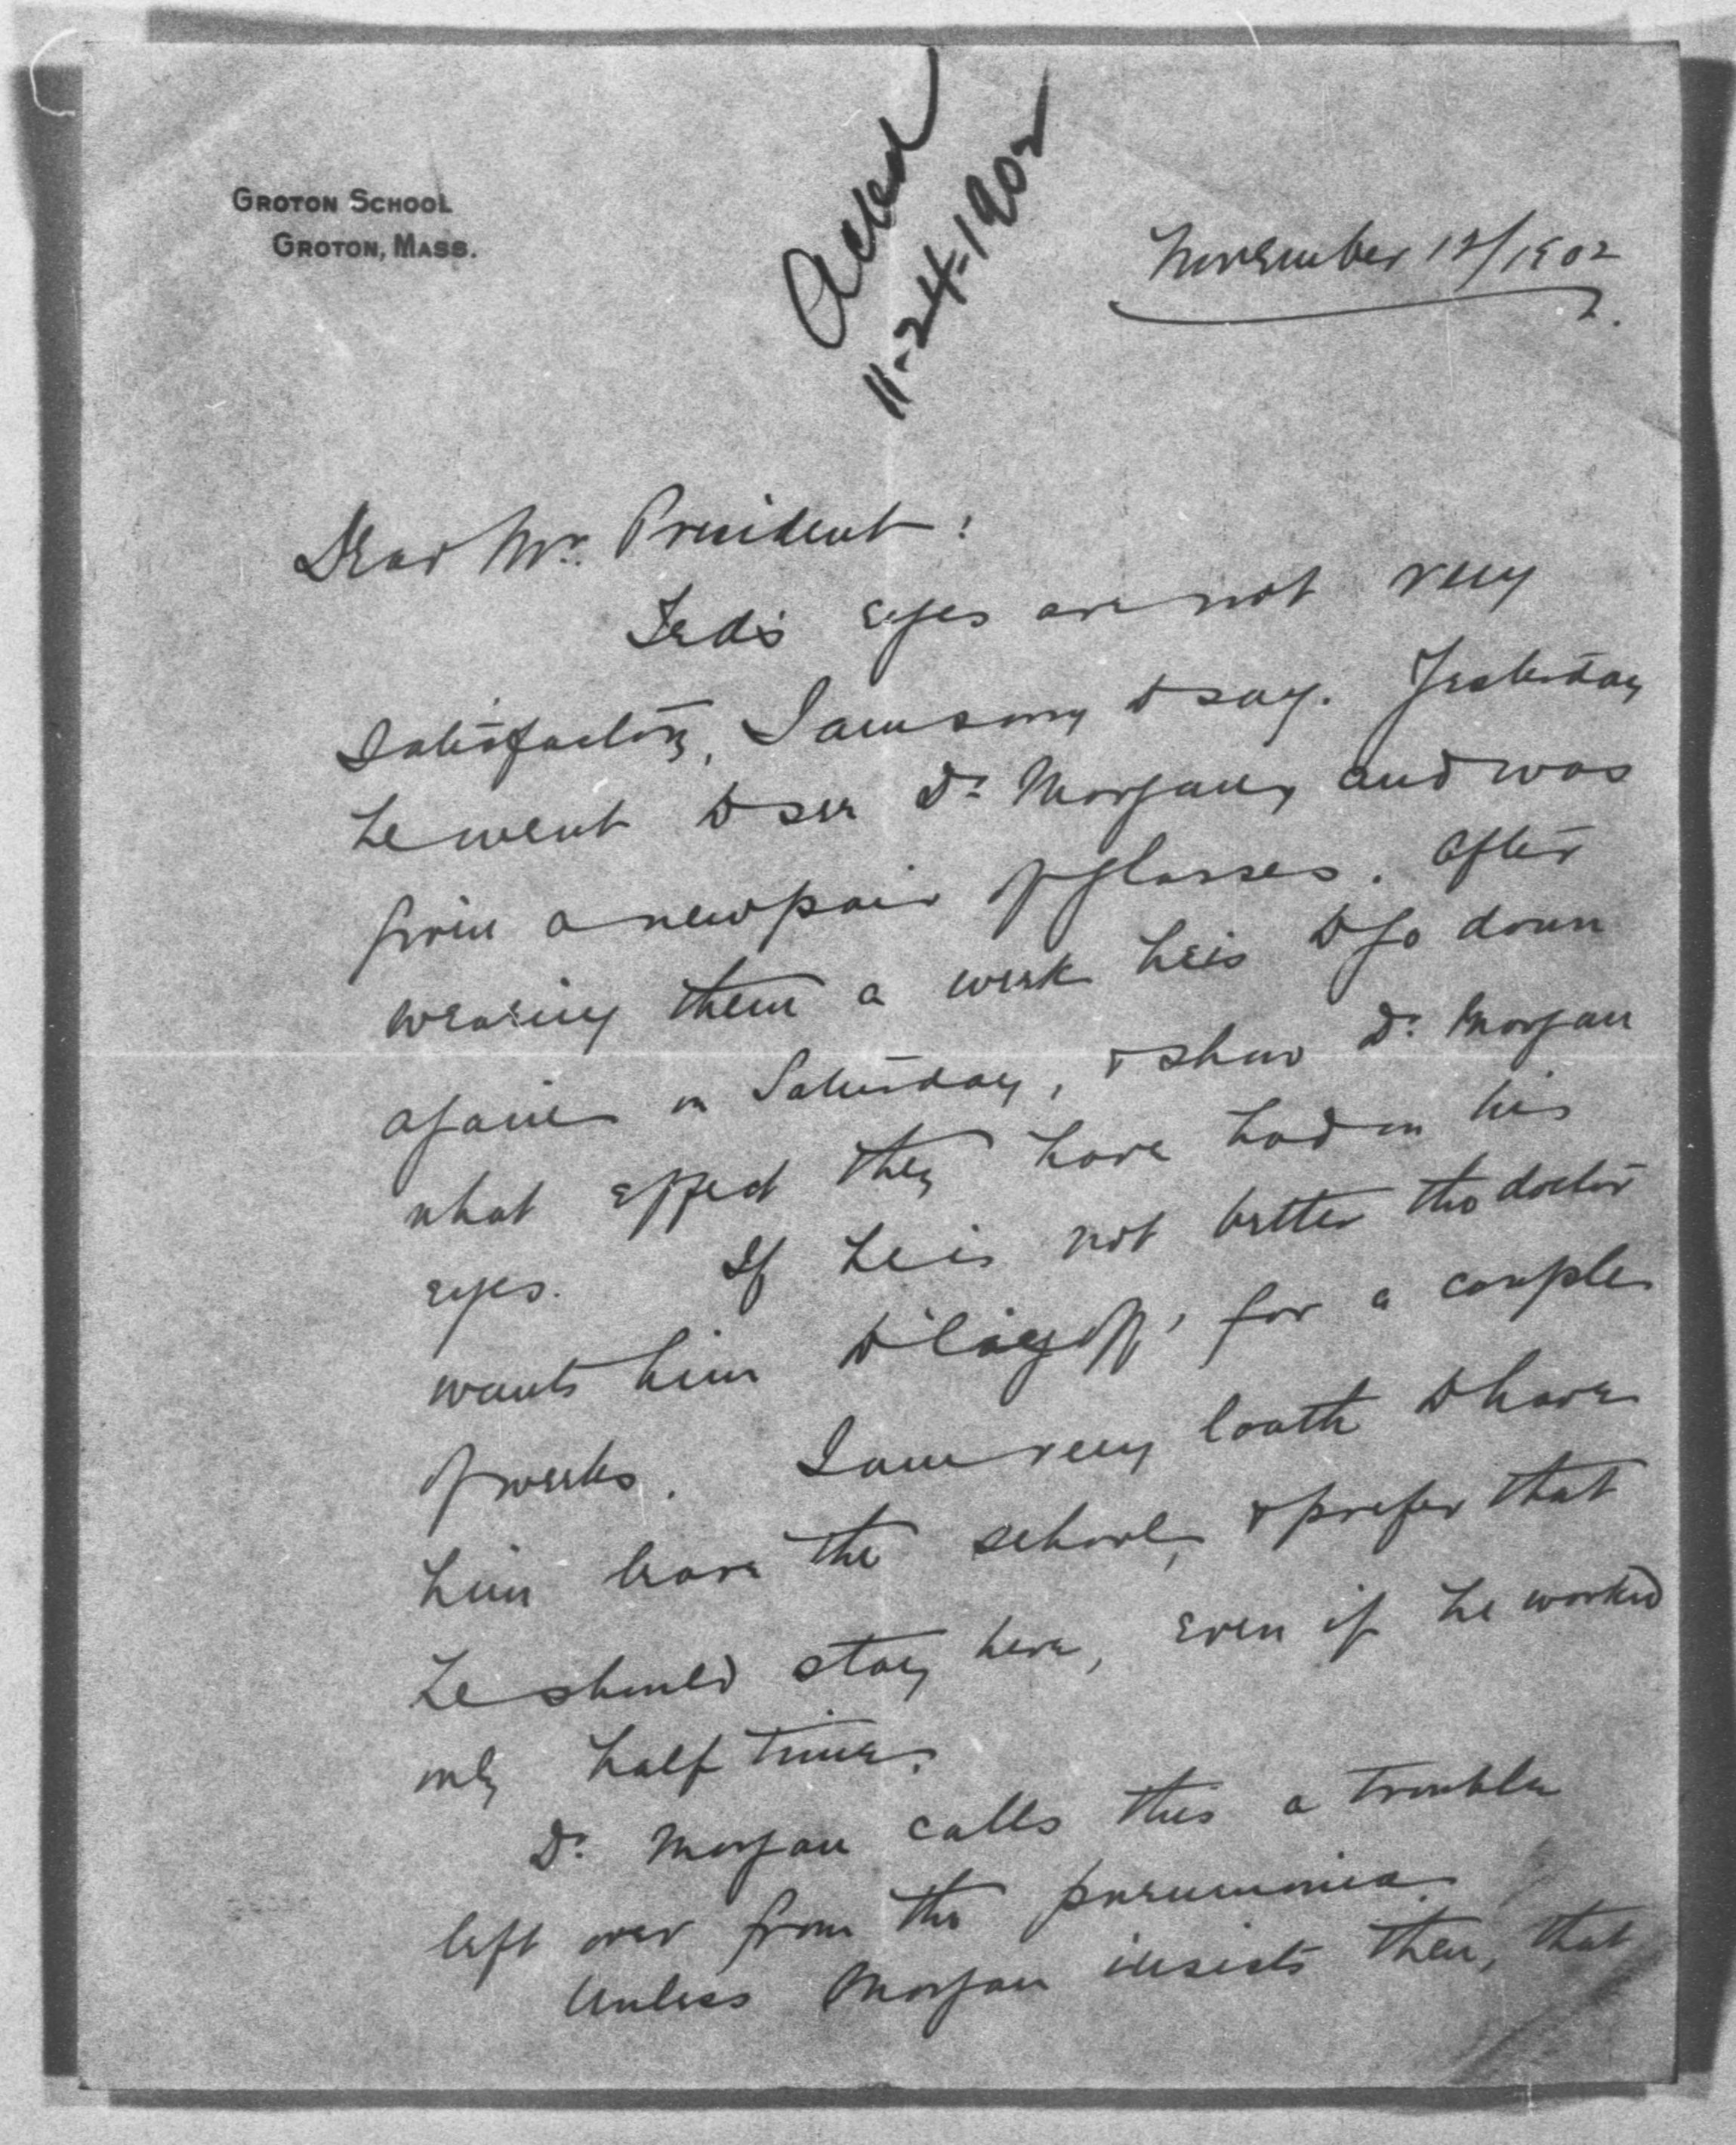 GROTON SCHOOL
GROTON, MASS.
Acked
11-24-1902
November 12/1902
Dear Mr. President:
Ted's eyes are not very
satisfactory, I am sorry to say. Yesterday
he went to see Dr. Morgan, and was
given a new pair of glasses. After
wearing them a week he is to go down
again on Saturday, & show Dr. Morgan
what effect they have had on his
eyes. If he is not better the doctor
wants him to 'lay off' for a couple
of weeks. I am very loath to have
him leave the school, & prefer that
he should stay here, even if he worked
only half time.
Dr. Morgan calls this a trouble
left over from the pneumonia.
Unless Morgan insists then, that